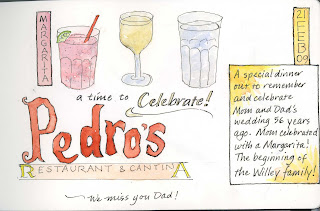 MARGARITA
21 FEB 09
a time to Celebrate!
Pedro's
RESTAURANT & CANTINA
We miss you Dad!
A special dinner
out to remember
and celebrate
Mom and Dad's
wedding 56 years
ago. Mom celebrated
with a Margarita!
The beginning of
the Willey family!